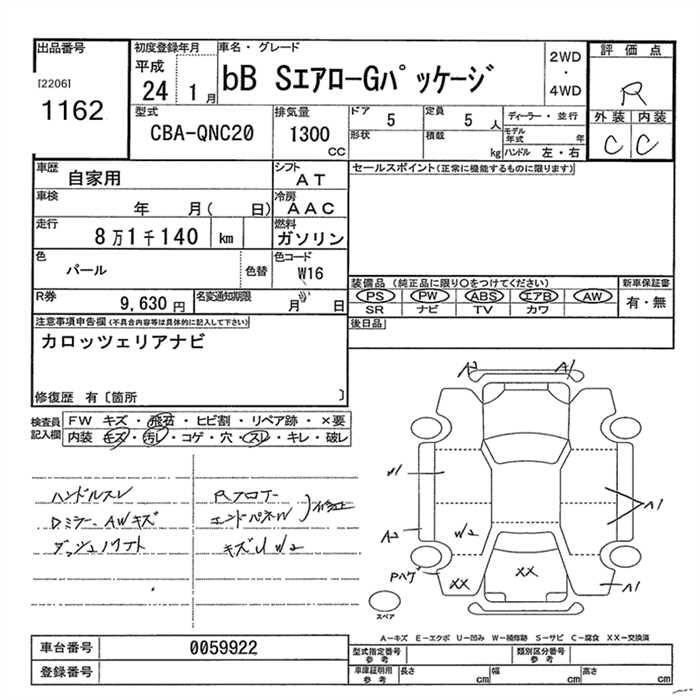 出品番号
[2206]
1162
初度登録年月
平成
24 1月
車名・グレード
bB SエアローGパッケージ
2WD
・
4WD
評価点
R
外装 内装
C C
型式
CBA-QNC20
排気量
1300
CC
ドア
5
定員
5 人
形状
積載
kg
ディーラー・並行
モデル年式 年
ハンドル 左・右
車歴
自家用
シフト
AT
車検
年 月( 日)
冷房
AAC
走行
8万1千140 km
燃料
ガソリン
色
パール
色替
色コード
W16
R券
9,630 円
名変通知期限
月 日
セールスポイント(正常に機能するものに限ります)
装備品 (純正品に限り○をつけてください)
PS PW ABS エアB AW
SR ナビ TV カワ
新車保証書
有・無
後日品
注意事項申告欄(不具合内容等は具体的に記入して下さい)
カロッツェリアナビ
修復歴 有〔箇所 〕
検査員
記入欄
FW キズ・飛石・ヒビ割・リペア跡・×要
内装 キズ・汚レ・コゲ・穴・スレ・キレ・破レ
ハンドルスレ
Dミラー、AWキズ
Rフロアー
エンドパネルW
修正
キズU W2
A2
A1
A1
A2
W2
A1
Pハゲ
XX
XX
A1
スペア
A-キズ E-エクボ U-凹み W-補修跡 S-サビ C-腐食 XX-交換済
車台番号
0059922
登録番号
型式指定番号
参考
類別区分番号
参考
車庫証明用
参考
長さ cm
幅 cm
高さ cm